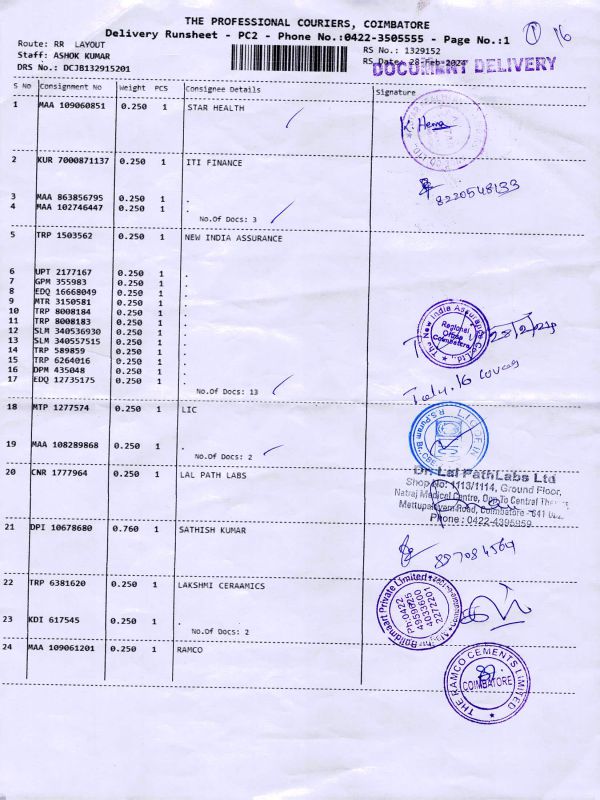 THE PROFESSIONAL COURIERS, COIMBATORE
Delivery Runsheet - PC2 - Phone No.:0422-3505555 - Page No.:1
1 16
Route: RR LAYOUT
Staff: ASHOK KUMAR
DRS No.: DCJB132915201
RS No.: 1329152
RS Date: 28-Feb-2024
DOCUMENT DELIVERY
S No Consignment No Weight PCS Consignee Details Signature
1 MAA 109060851 0.250 1 STAR HEALTH
K. Hema
2 KUR 7000871137 0.250 1 ITI FINANCE
3 MAA 863856795 0.250 1 .
4 MAA 102746447 0.250 1 .
No.Of Docs: 3
8220548133
5 TRP 1503562 0.250 1 NEW INDIA ASSURANCE
6 UPT 2177167 0.250 1 .
7 GPM 355983 0.250 1 .
8 EDQ 16668049 0.250 1 .
9 MTR 3150581 0.250 1 .
10 TRP 8008184 0.250 1 .
11 TRP 8008183 0.250 1 .
12 SLM 340536930 0.250 1 .
13 SLM 340557515 0.250 1 .
14 TRP 589859 0.250 1 .
15 TRP 6264016 0.250 1 .
16 DPM 435048 0.250 1 .
17 EDQ 12735175 0.250 1 .
No.Of Docs: 13
The New India Assurance Co. Ltd.
Regional
Office
Coimbatore
28/2/24
16 covers
18 MTP 1277574 0.250 1 LIC
19 MAA 108289868 0.250 1 .
No.Of Docs: 2
LIC OF IN
R.S.Puram Br.
20 CNR 1777964 0.250 1 LAL PATH LABS
Dr. Lal PathLabs Ltd
Shop No: 1113/1114, Ground Floor,
Natraj Medical Centre, Opp To Central
Mettupalayam Road, Coimbatore - 641
Phone : 0422-4395859
21 DPI 10678680 0.760 1 SATHISH KUMAR
22 TRP 6381620 0.250 1 LAKSHMI CERAAMICS
23 KDI 617545 0.250 1 .
No.Of Docs: 2
Buildmaart Private Limited
Ph:0422
4959025
4033600
2272201
24 MAA 109061201 0.250 1 RAMCO
THE RAMCO CEMENTS LIMITED
COIMBATORE